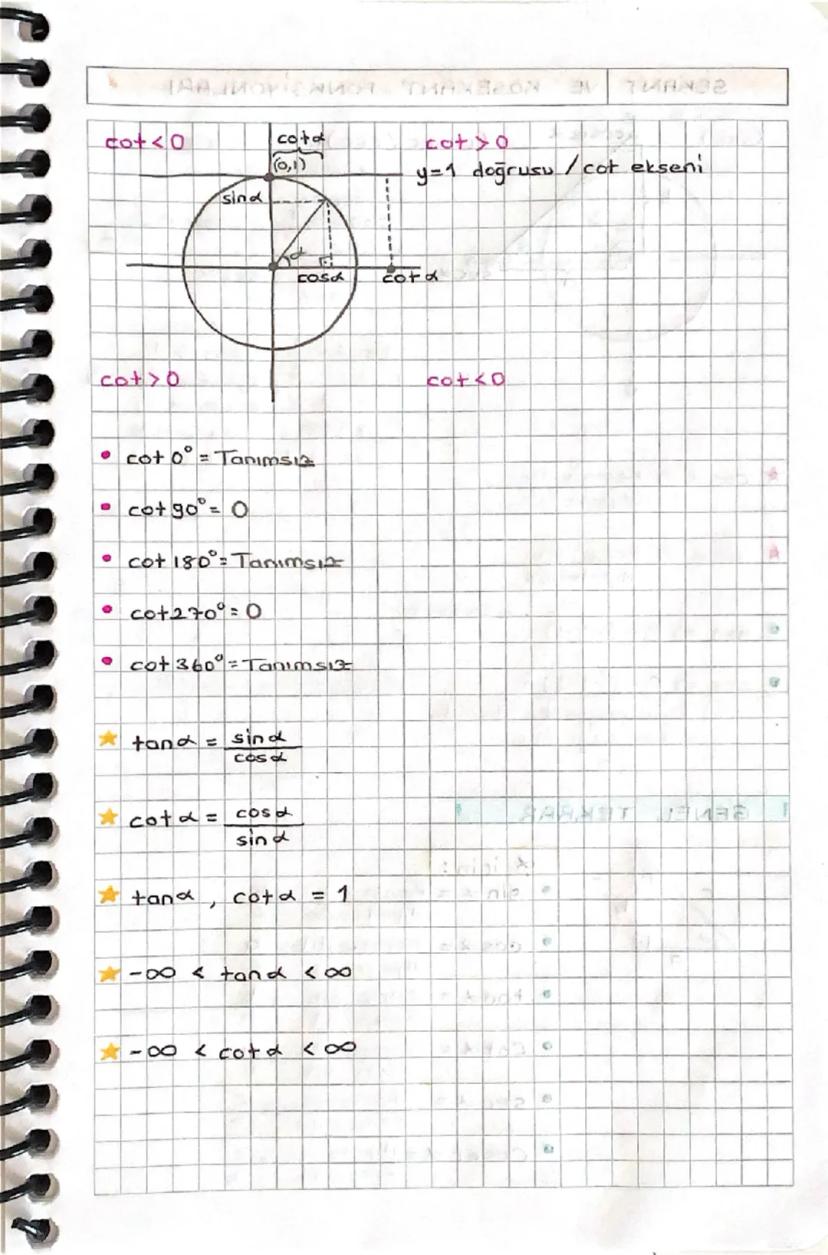 cot<0
cotα
cot>0
(0,1)
y=1 doğrusu / cot ekseni
sinα
α
cosα
cotα
cot>0
cot<0
• cot 0° = Tanımsız
• cot 90° = 0
• cot 180° = Tanımsız
• cot 270° = 0
• cot 360° = Tanımsız
tanα = sinα / cosα
cotα = cosα / sinα
tanα , cotα = 1
-∞ < tanα < ∞
-∞ < cotα < ∞